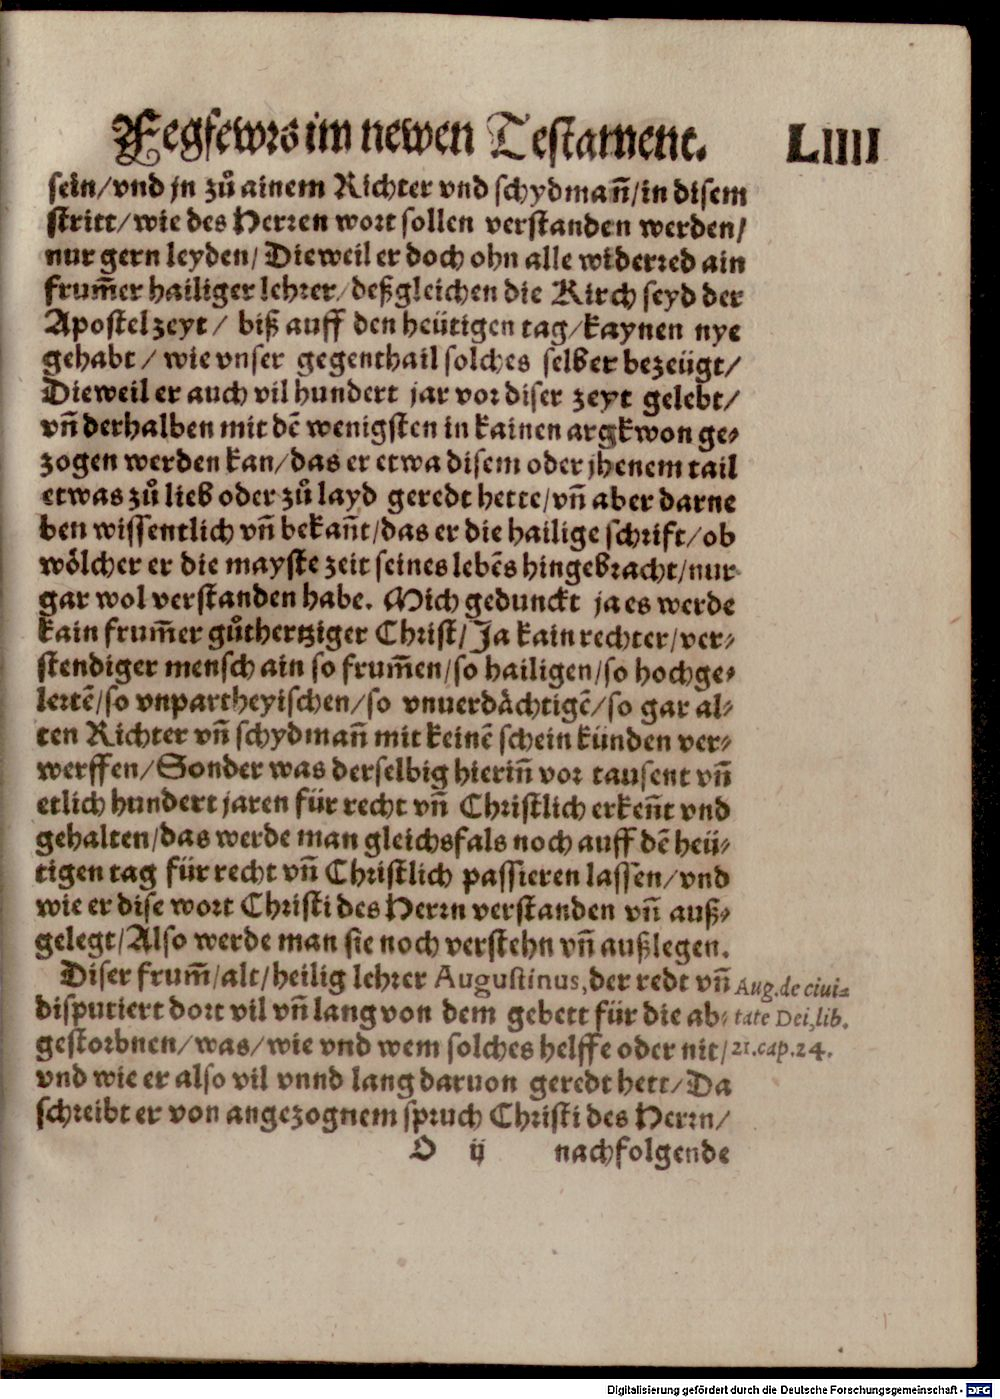 Fegfewrs im newen Testament. LIIII
sein/vnd jn zů ainem Richter vnd schydmañ/in disem
stritt/wie des Herren wort sollen verstanden werden/
nur gern leyden/Dieweil er doch ohn alle widerred ain
frum̃er hailiger lehrer/deßgleichen die Kirch seyd der
Apostel zeyt/ biß auff den heütigen tag/kaynen nye
gehabt/ wie vnser gegenthail solches selber bezeügt/
Dieweil er auch vil hundert jar vor diser zeyt gelebt/
vñ derhalben mit dẽ wenigsten in kainen argkwon ge⸗
zogen werden kan/das er etwa disem oder jhenem tail
etwas zů lieb oder zů layd geredt hette/vñ aber darne
ben wissentlich vñ bekañt/das er die hailige schrift/ob
wölcher er die mayste zeit seines lebẽs hingebracht/nur
gar wol verstanden habe. Mich gedunckt ja es werde
kain frum̃er gůthertziger Christ/Ja kain rechter/ver⸗
stendiger mensch ain so frum̃en/so hailigen/so hochge⸗
lertẽ/so vnpartheyischen/so vnuerdächtigẽ/so gar al⸗
ten Richter vñ schydmañ mit keinẽ schein künden ver⸗
werffen/Sonder was derselbig hieriñ vor tausent vñ
etlich hundert jaren für recht vñ Christlich erkeñt vnd
gehalten/das werde man gleichsfals noch auff dẽ heü⸗
tigen tag für recht vñ Christlich passieren lassen/vnd
wie er dise wort Christi des Herrn verstanden vñ auß⸗
gelegt/Also werde man sie noch verstehn vñ außlegen.
Diser frum̃/alt/heilig lehrer Augustinus, der redt vñ
disputiert dort vil vñ lang von dem gebett für die ab⸗
gestorbnen/was/wie vnd wem solches helffe oder nit/
vnd wie er also vil vnnd lang daruon geredt hett/Da
schreibt er von angezognem spruch Christi des Herrn/
Aug. de ciui⸗
tate Dei, lib.
21. cap. 24.
O ij nachfolgende
Digitalisierung gefördert durch die Deutsche Forschungsgemeinschaft - DFG